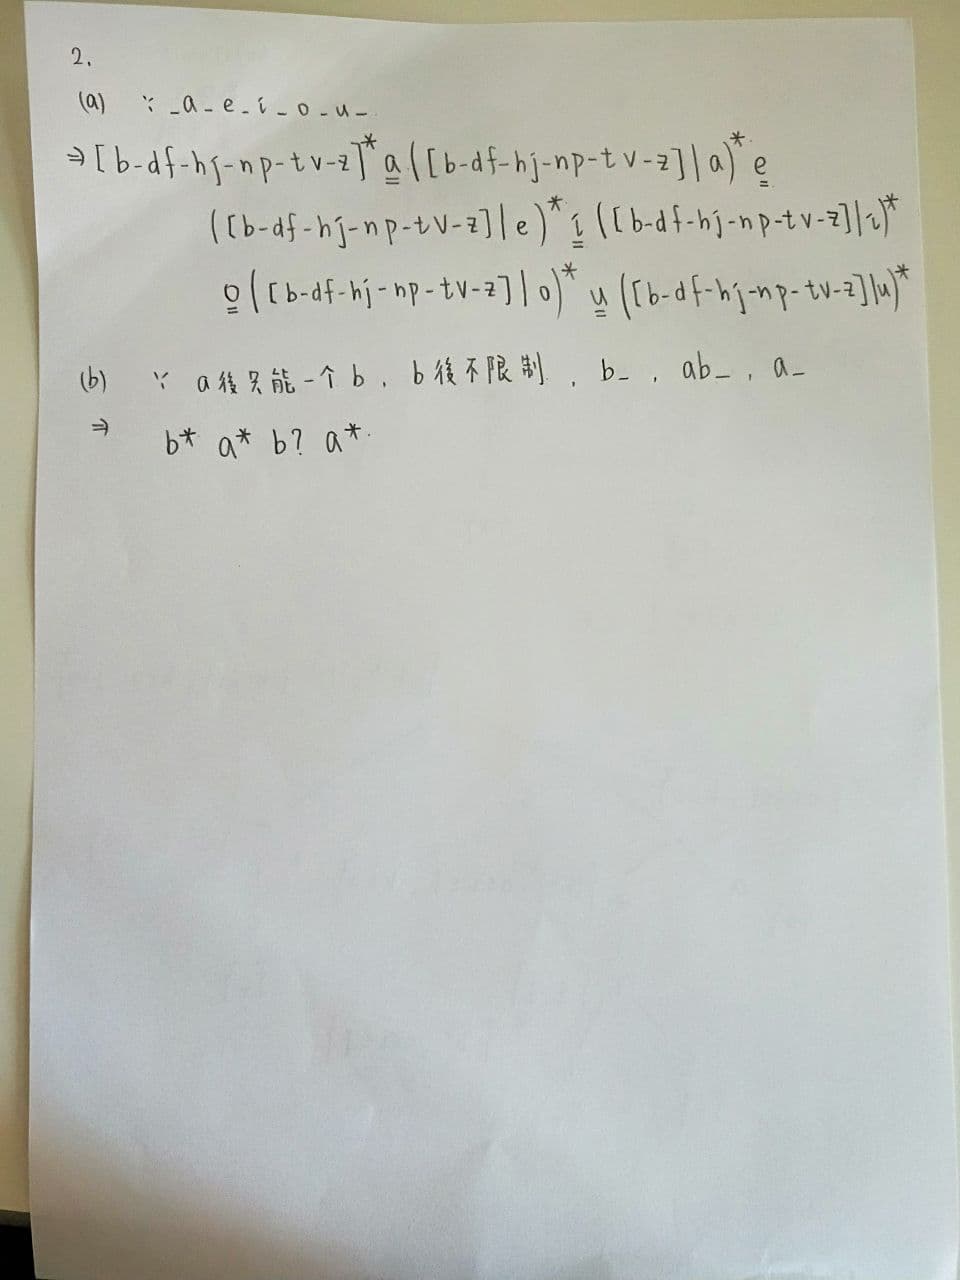 2.
(a) ∵ _a_e_i_o_u_
⇒ [b-df-hj-np-tv-z]* a ([b-df-hj-np-tv-z]|a)* e
([b-df-hj-np-tv-z]|e)* i ([b-df-hj-np-tv-z]|i)*
o([b-df-hj-np-tv-z]|o)* u ([b-df-hj-np-tv-z]|u)*
(b) ∵ a後只能一个b, b後不限制, b_, ab_, a_
⇒ b* a* b? a*.